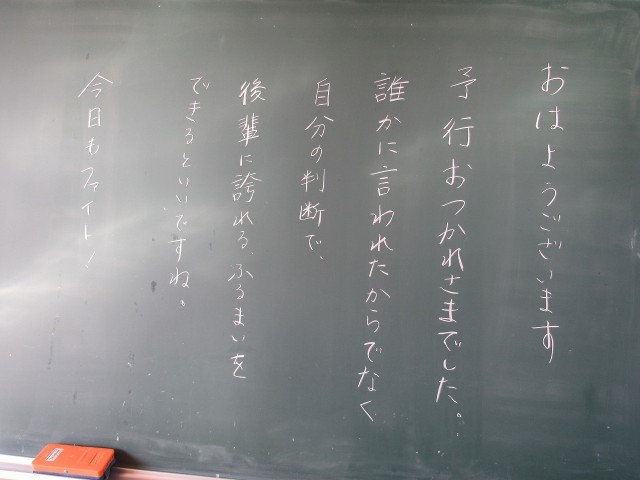 おはようございます
予行おつかれさまでした。
誰かに言われたからでなく
自分の判断で、
後輩に誇れる、ふるまいを
できるといいですね。
今日もファイト!